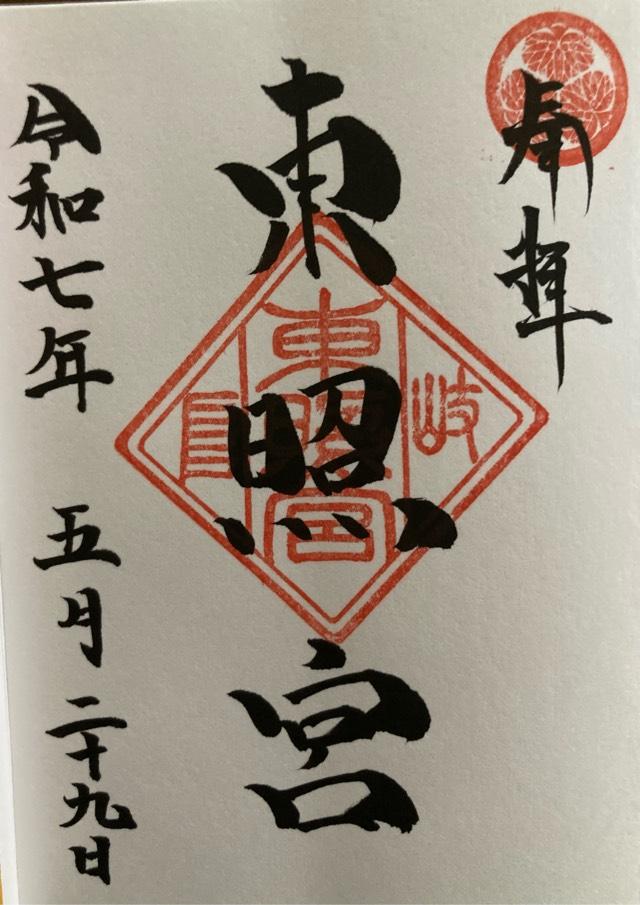 奉拝
岐
東照宮
東照宮
阜
令和七年 五月二十九日